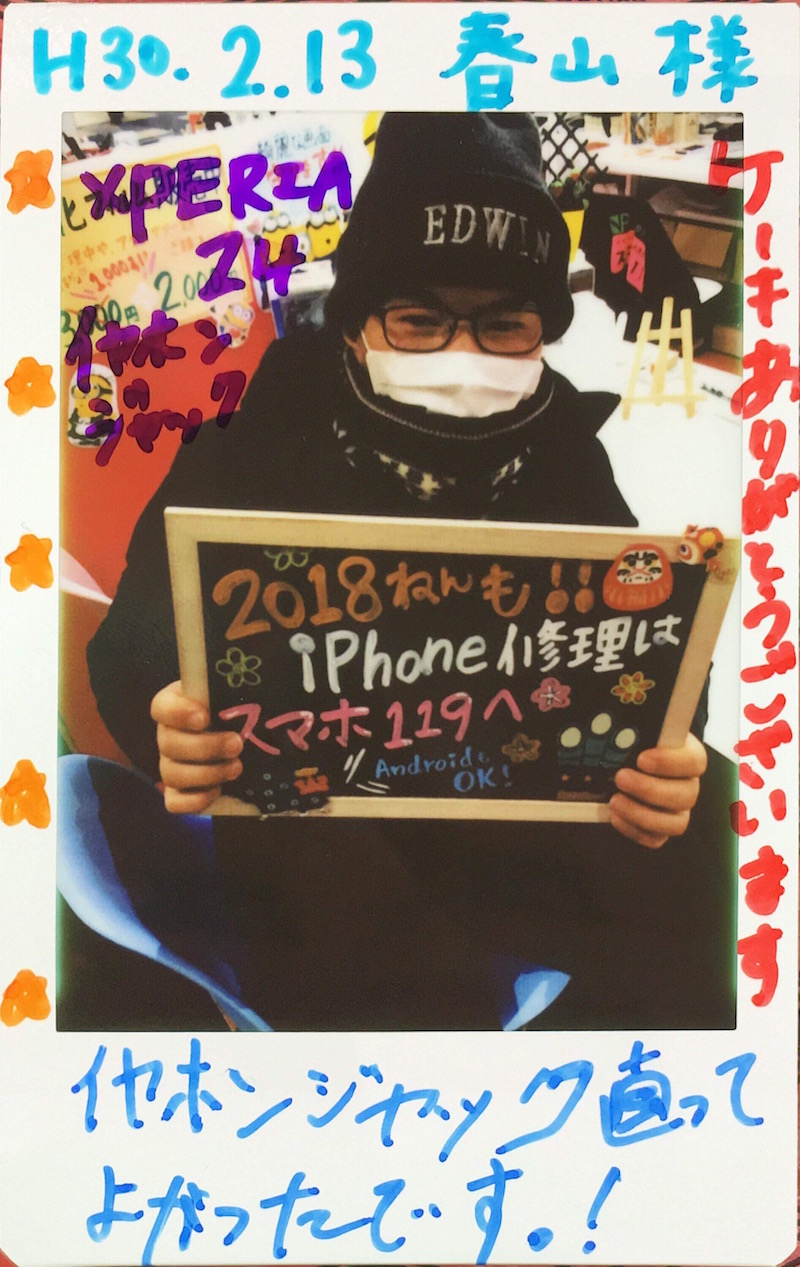 H30.2.13 春山様
XPERIA
Z4
イヤホン
ジャック
ケーキありがとうございます
2,000円
1,000
EDWIN
2018ねんも!!
iPhone修理は
スマホ119へ
Androidも
OK!
イヤホンジャック直って
よかったです。!